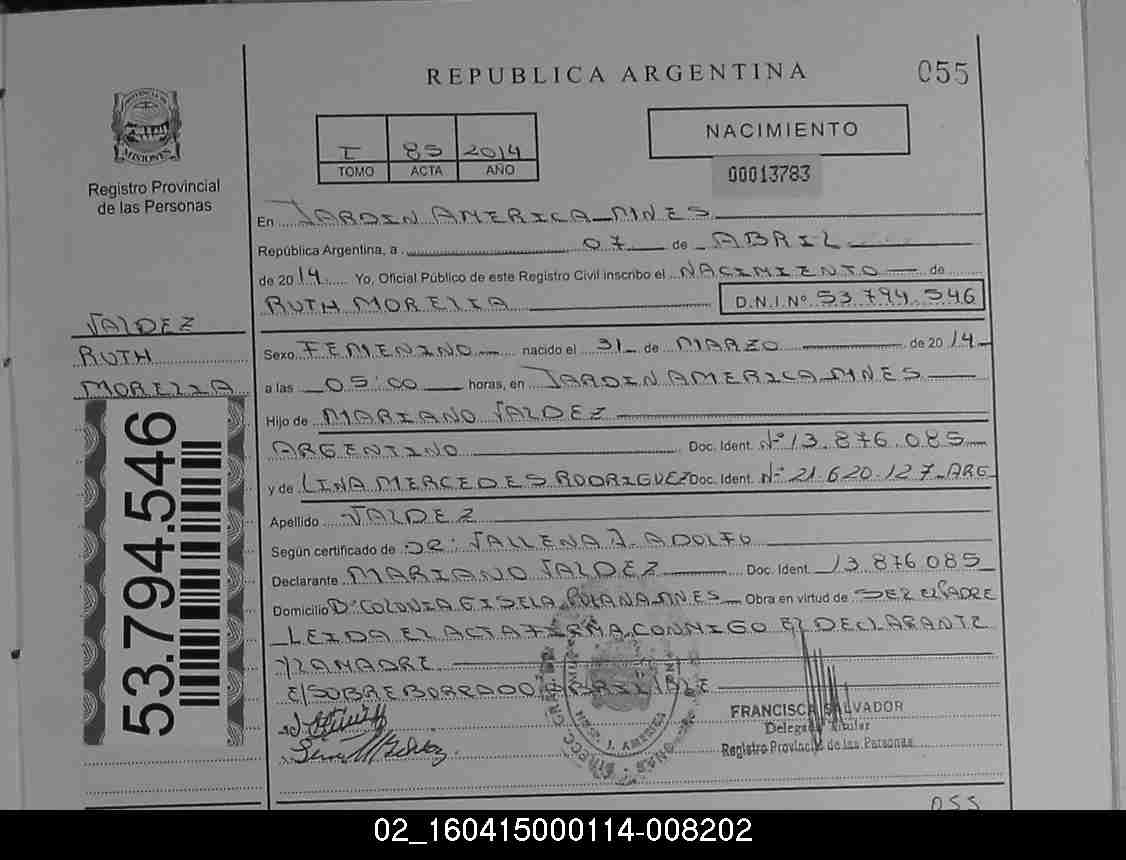 REPUBLICA ARGENTINA
055
PROVINCIA DE MISIONES
Registro Provincial
de las Personas
I 85 2014
TOMO ACTA AÑO
NACIMIENTO
00013783
En JARDIN AMERICA MNES
República Argentina, a 07 de ABRIL
de 2014 Yo, Oficial Público de este Registro Civil inscribo el NACIMIENTO de
RUTH MORELIA D.N.I.Nº 53.794.546
VALDEZ
RUTH
MORELIA
53.794.546
Sexo FEMENINO nacido el 31 de MARZO de 2014
a las 05:00 horas, en JARDIN AMERICA MNES
Hijo de MARIANO VALDEZ
ARGENTINO Doc. Ident. Nº 13.876.085
y de LINA MERCEDES RODRIGUEZ Doc. Ident. Nº 21.620.127 ARG
Apellido VALDEZ
Según certificado de DR: VALLENA J. ADOLFO
Declarante MARIANO VALDEZ Doc. Ident. 13.876.085
Domicilio Dº COLONIA GISELA MNES Obra en virtud de SER EL PADRE
LEIDA EL ACTA FIRMA CONMIGO EL DECLARANTE
Y LA MADRE
E/SOBREBORRADO VALE
J. AMERICA
FRANCISCA SALVADOR
Delegada Titular
Registro Provincial de las Personas
055
02_160415000114-008202